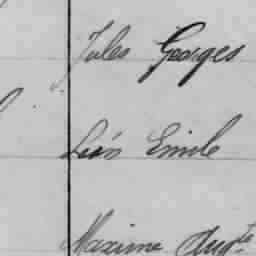 Jules Georges
Léon Emile
Maxime Augte